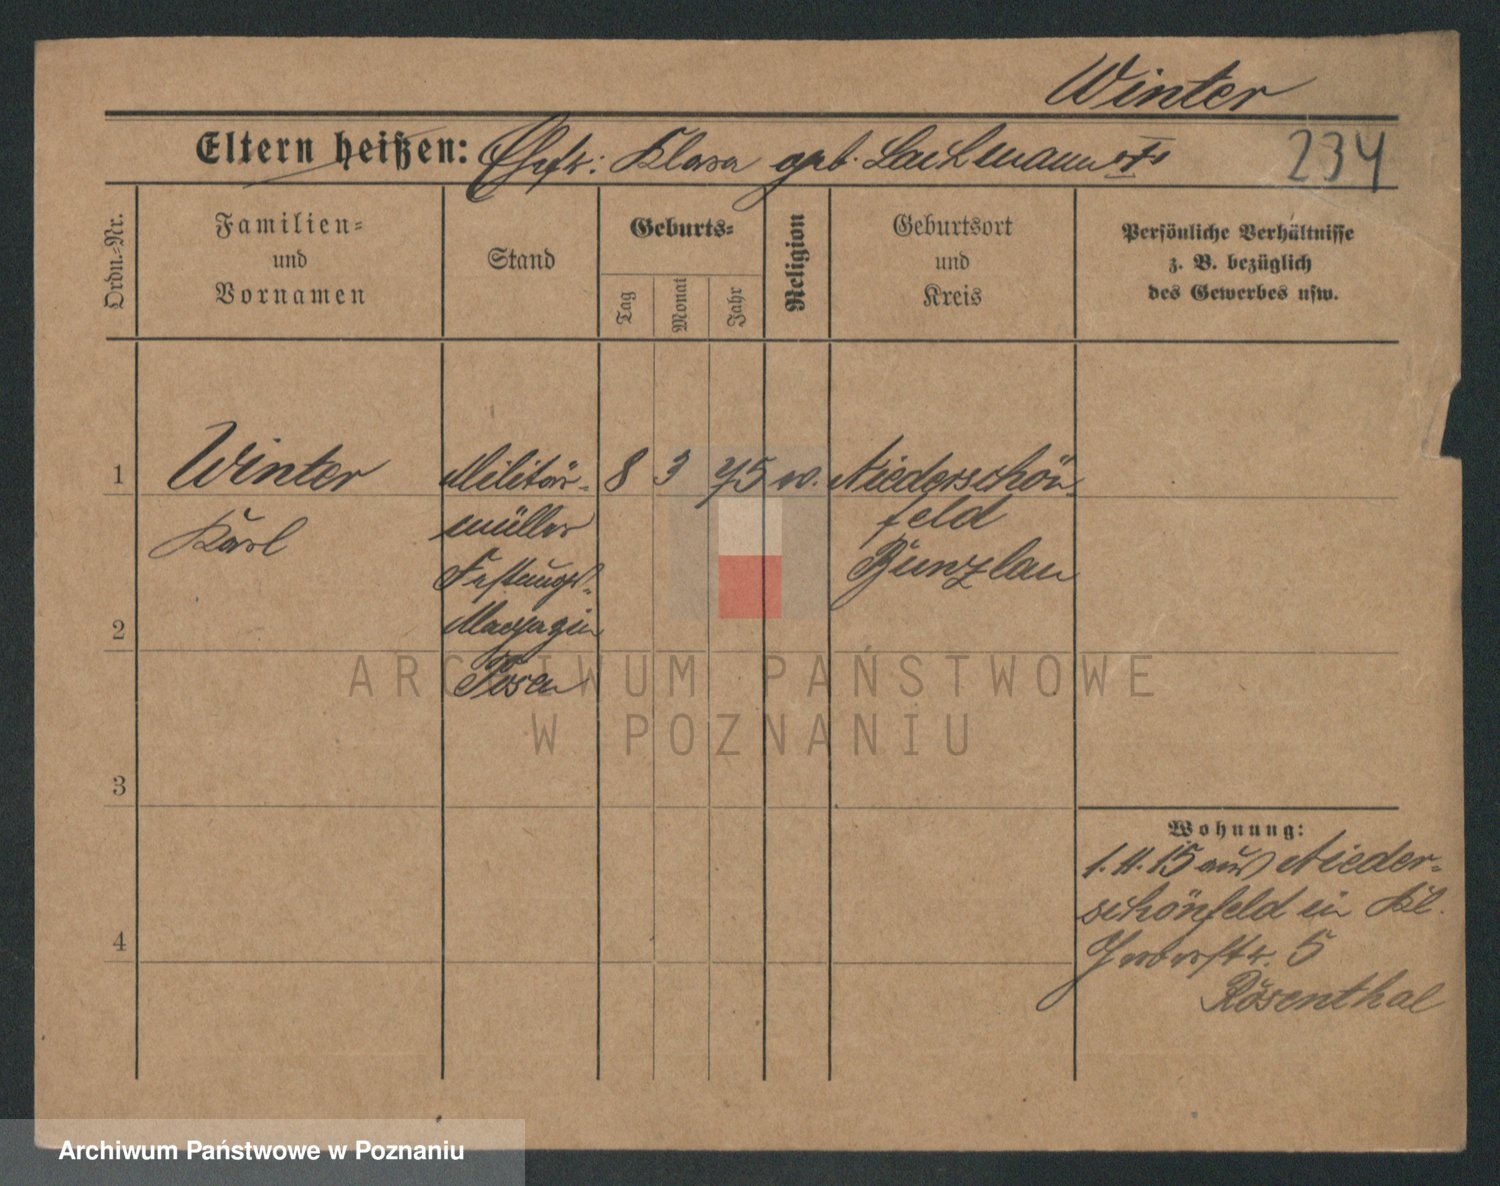 Winter
Eltern heißen: Ehefr: Klara geb. Lachmann
234
Ordn.-Nr.
Familien-
und
Vornamen
Stand
Geburts-
Tag
Monat
Jahr
Religion
Geburtsort
und
Kreis
Persönliche Verhältnisse
z. B. bezüglich
des Gewerbes usw.
1
Winter
Karl
Militär-
müller
Festungs-
Magazin
Posen
8
3
75
Niederschön-
feld
Bunzlau
2
3
4
Wohnung:
1. 11. 15 aus Nieder-
schönfeld in Kl.
5
Rosenthal
ARCHIWUM PAŃSTWOWE
W POZNANIU
Archiwum Państwowe w Poznaniu